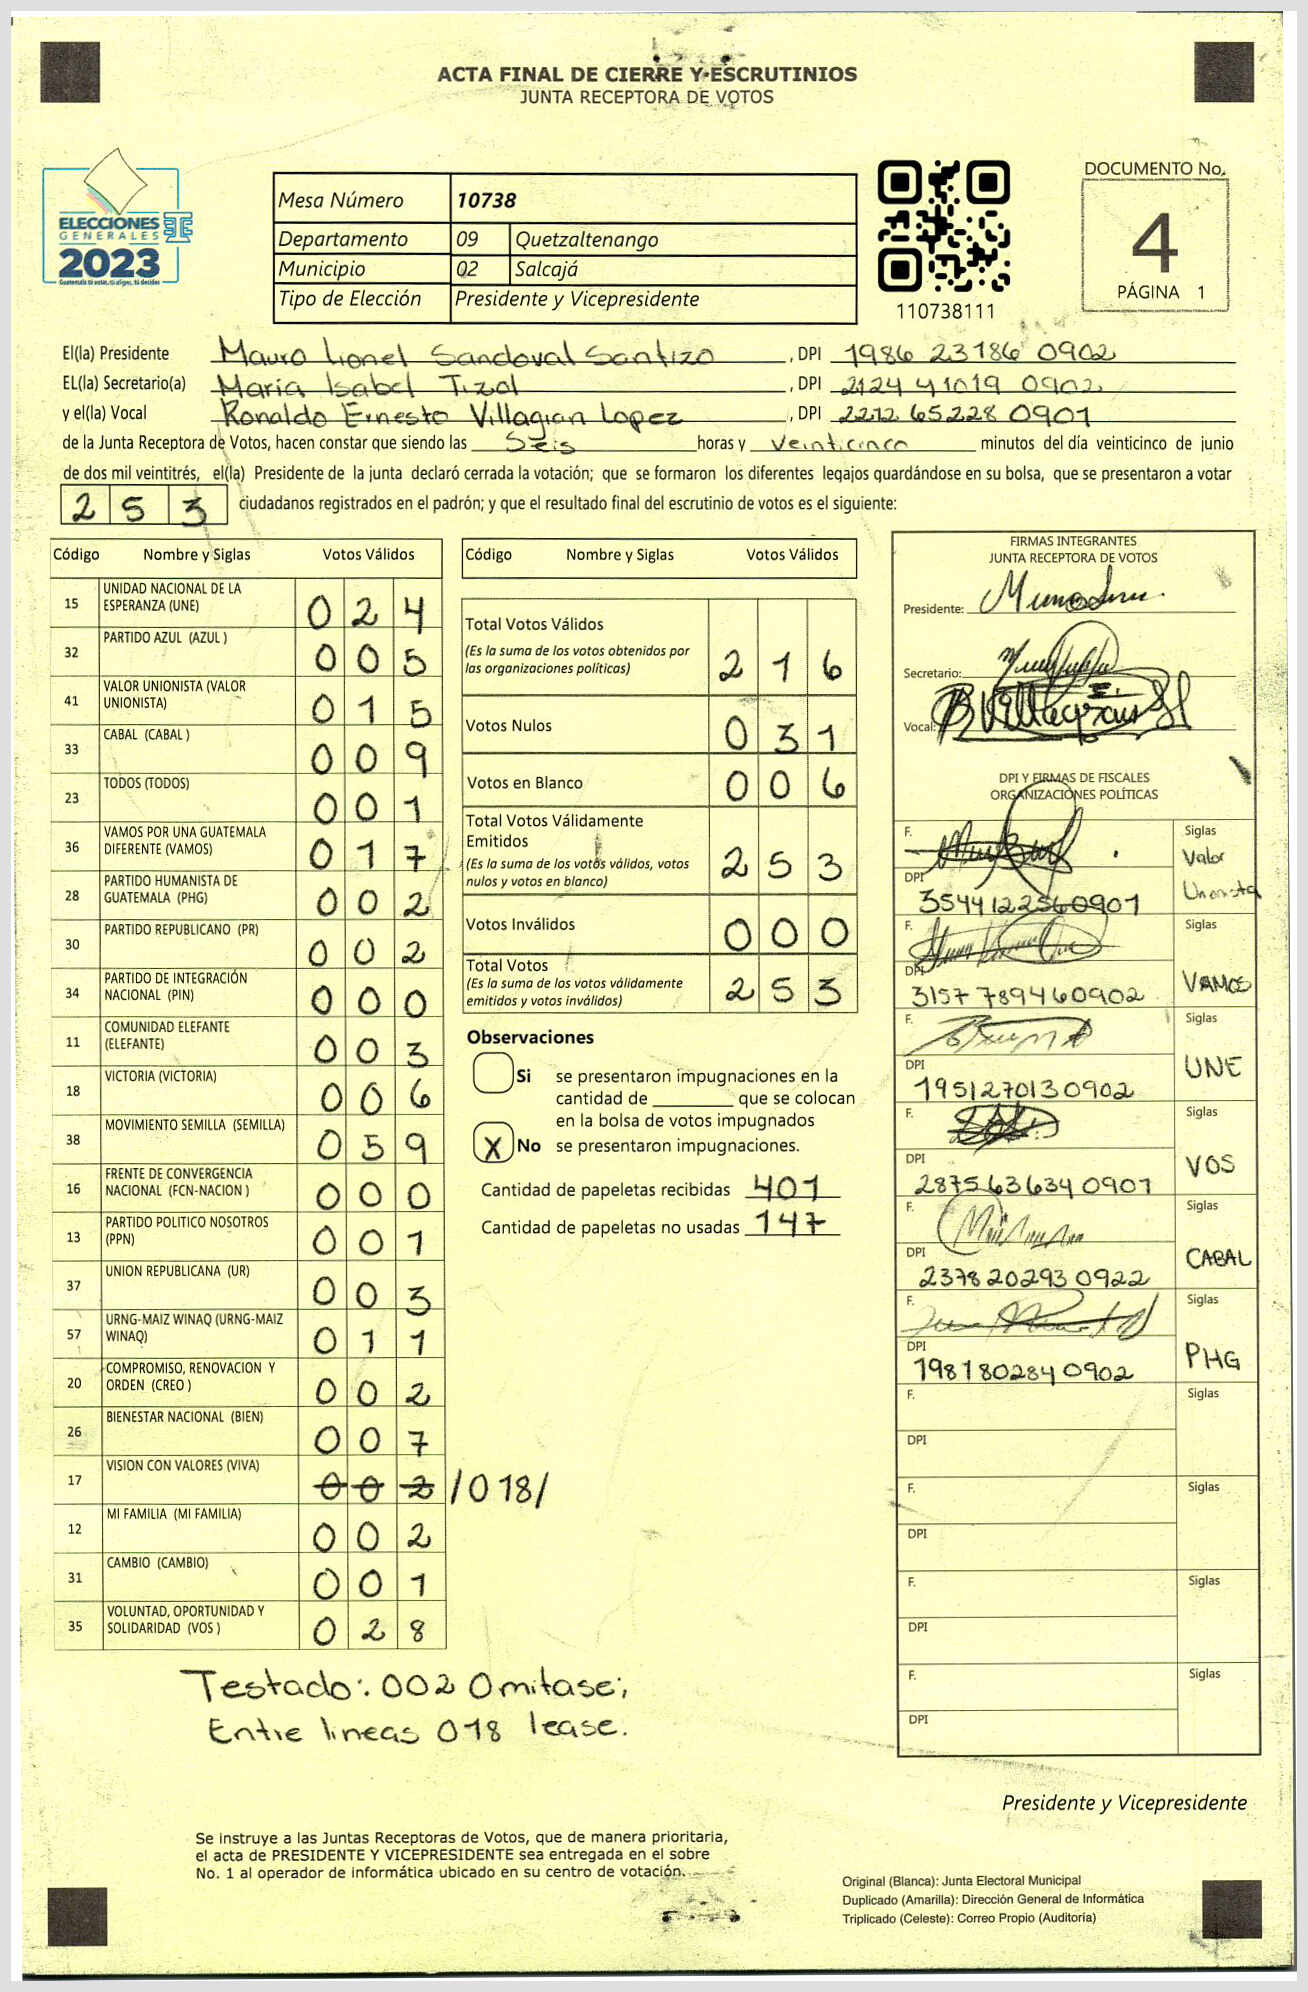 ACTA FINAL DE CIERRE Y ESCRUTINIOS
JUNTA RECEPTORA DE VOTOS
ELECCIONES
GENERALES
2023
Mesa Número 10738
Departamento 09 Quetzaltenango
Municipio 02 Salcajá
Tipo de Elección Presidente y Vicepresidente
110738111
DOCUMENTO No.
4
PÁGINA 1
El(la) Presidente Mauro Lionel Sandoval Santizo , DPI 1986 23186 0902
EL(la) Secretario(a) María Isabel Tizol , DPI 2124 41019 0902
y el(la) Vocal Ronaldo Ernesto Villagran Lopez , DPI 2212 65228 0901
de la Junta Receptora de Votos, hacen constar que siendo las Seis horas y veinticinco minutos del día veinticinco de junio
de dos mil veintitrés, el(la) Presidente de la junta declaró cerrada la votación; que se formaron los diferentes legajos guardándose en su bolsa, que se presentaron a votar
253 ciudadanos registrados en el padrón; y que el resultado final del escrutinio de votos es el siguiente:
Código Nombre y Siglas Votos Válidos
15 UNIDAD NACIONAL DE LA ESPERANZA (UNE) 024
32 PARTIDO AZUL (AZUL ) 005
41 VALOR UNIONISTA (VALOR UNIONISTA) 015
33 CABAL (CABAL ) 009
23 TODOS (TODOS) 001
36 VAMOS POR UNA GUATEMALA DIFERENTE (VAMOS) 017
28 PARTIDO HUMANISTA DE GUATEMALA (PHG) 002
30 PARTIDO REPUBLICANO (PR) 002
34 PARTIDO DE INTEGRACIÓN NACIONAL (PIN) 000
11 COMUNIDAD ELEFANTE (ELEFANTE) 003
18 VICTORIA (VICTORIA) 006
38 MOVIMIENTO SEMILLA (SEMILLA) 059
16 FRENTE DE CONVERGENCIA NACIONAL (FCN-NACION ) 000
13 PARTIDO POLITICO NOSOTROS (PPN) 001
37 UNION REPUBLICANA (UR) 003
57 URNG-MAIZ WINAQ (URNG-MAIZ WINAQ) 011
20 COMPROMISO, RENOVACION Y ORDEN (CREO ) 002
26 BIENESTAR NACIONAL (BIEN) 007
17 VISION CON VALORES (VIVA) 002 /018/
12 MI FAMILIA (MI FAMILIA) 002
31 CAMBIO (CAMBIO) 001
35 VOLUNTAD, OPORTUNIDAD Y SOLIDARIDAD (VOS ) 028
Testado: 002 Omitase;
Entre lineas 018 lease.
Código Nombre y Siglas Votos Válidos
Total Votos Válidos 216
(Es la suma de los votos obtenidos por
las organizaciones políticas)
Votos Nulos 031
Votos en Blanco 006
Total Votos Válidamente
Emitidos 253
(Es la suma de los votos válidos, votos
nulos y votos en blanco)
Votos Inválidos 000
Total Votos 253
(Es la suma de los votos válidamente
emitidos y votos inválidos)
Observaciones
Si se presentaron impugnaciones en la
cantidad de ________ que se colocan
en la bolsa de votos impugnados
X No se presentaron impugnaciones.
Cantidad de papeletas recibidas 401
Cantidad de papeletas no usadas 147
FIRMAS INTEGRANTES
JUNTA RECEPTORA DE VOTOS
Presidente:
Secretario:
Vocal:
DPI Y FIRMAS DE FISCALES
ORGANIZACIONES POLÍTICAS
F. Siglas Valor Unionista
DPI 3544122560901
F. Siglas VAMOS
DPI 3157 789460902
F. Siglas UNE
DPI 1951270130902
F. Siglas VOS
DPI 2875636340901
F. Siglas CABAL
DPI 2378202930922
F. Siglas PHG
DPI 1981802840902
F. Siglas
DPI
F. Siglas
DPI
F. Siglas
DPI
F. Siglas
DPI
Presidente y Vicepresidente
Se instruye a las Juntas Receptoras de Votos, que de manera prioritaria,
el acta de PRESIDENTE Y VICEPRESIDENTE sea entregada en el sobre
No. 1 al operador de informática ubicado en su centro de votación.
Original (Blanca): Junta Electoral Municipal
Duplicado (Amarilla): Dirección General de Informática
Triplicado (Celeste): Correo Propio (Auditoría)